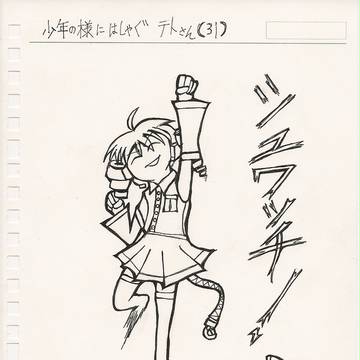 少年の様にはしゃぐ テトさん(31)
シュワッチ!